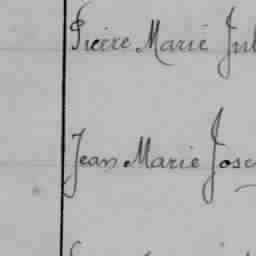 Pierre Marie Jul
Jean Marie Jose